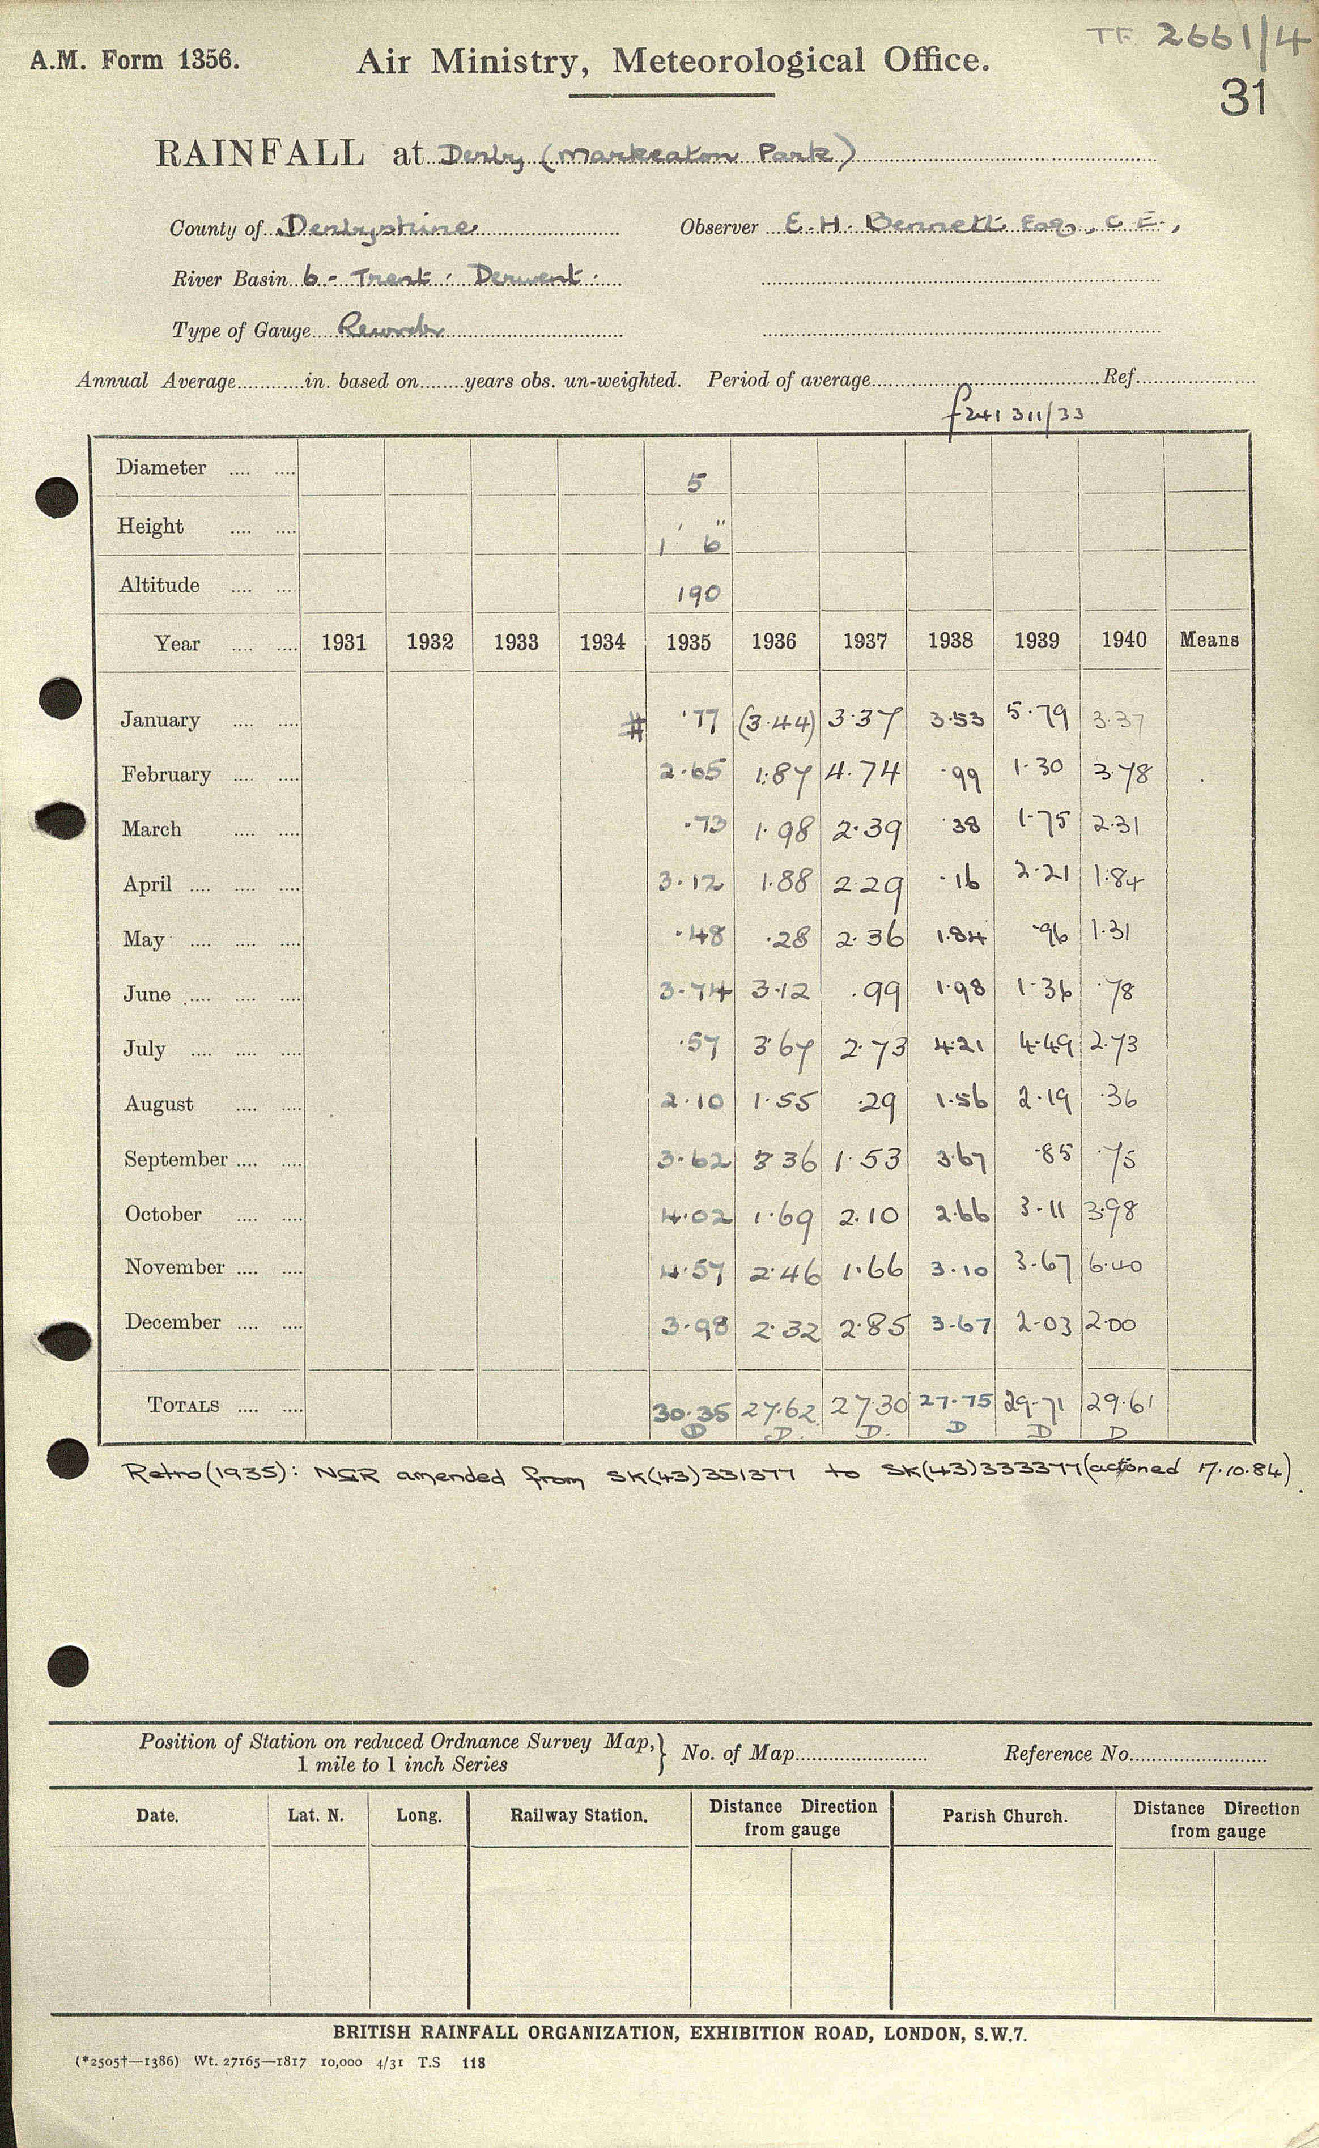 TF 2661/4
A.M. Form 1356. Air Ministry, Meteorological Office.
31
RAINFALL at Derby (Markeaton Park)
County of Derbyshire Observer E. H. Bennett Esq., C.E.,
River Basin 6 - Trent : Derwent.
Type of Gauge Recorder
Annual Average in. based on years obs. un-weighted. Period of average Ref.
f 241 311/33
Diameter 5
Height 1' 6"
Altitude 190
Year 1931 1932 1933 1934 1935 1936 1937 1938 1939 1940 Means
January # .77 (3.44) 3.37 3.53 5.79 3.37
February 2.65 1.87 4.74 .99 1.30 3.78
March .73 1.98 2.39 .38 1.75 2.31
April 3.12 1.88 2.29 .16 2.21 1.84
May .48 .28 2.36 1.84 .96 1.31
June 3.74 3.12 .99 1.98 1.36 .78
July .57 3.67 2.73 4.21 4.49 2.73
August 2.10 1.55 .29 1.56 2.19 .36
September 3.62 3.36 1.53 3.67 .85 .75
October 4.02 1.69 2.10 2.66 3.11 3.98
November 4.57 2.46 1.66 3.10 3.67 6.40
December 3.98 2.32 2.85 3.67 2.03 2.00
TOTALS 30.35 27.62 27.30 27.75 29.71 29.61
D D. D. D D D
Retro (1935): NGR amended from SK(43)331377 to SK(43)333377 (actioned 17.10.84).
Position of Station on reduced Ordnance Survey Map, } No. of Map Reference No.
1 mile to 1 inch Series
Date. Lat. N. Long. Railway Station. Distance Direction Parish Church. Distance Direction
from gauge from gauge
BRITISH RAINFALL ORGANIZATION, EXHIBITION ROAD, LONDON, S.W.7.
(*2505†—1386) Wt. 27165—1817 10,000 4/31 T.S 118